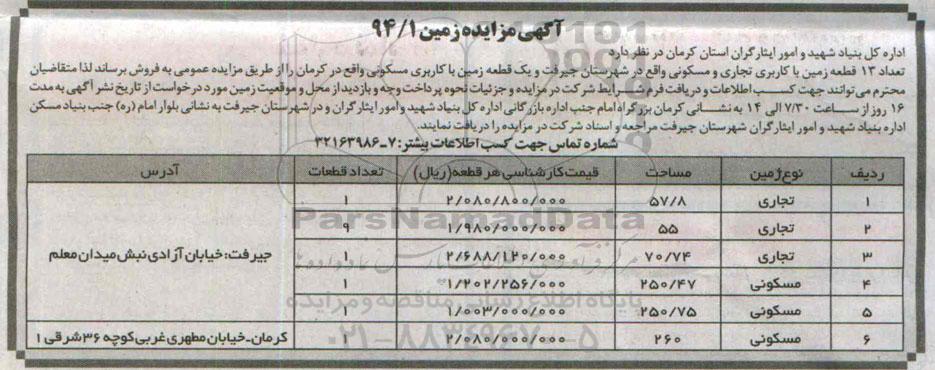 آگهی مزایده زمین ۹۴/۱
اداره کل بنیاد شهید و امور ایثارگران استان کرمان در نظر دارد
تعداد ۱۳ قطعه زمین با کاربری تجاری و مسکونی واقع در شهرستان جیرفت و یک قطعه زمین با کاربری مسکونی واقع در کرمان را از طریق مزایده عمومی به فروش برساند لذا متقاضیان
محترم می توانند جهت کسب اطلاعات و دریافت فرم شرایط شرکت در مزایده و جزئیات نحوه پرداخت وجه و بازدید از محل و موقعیت زمین مورد درخواست از تاریخ نشر آگهی به مدت
۱۶ روز از ساعت ۷/۳۰ الی ۱۴ به نشانی کرمان بزرگراه امام جنب اداره بازرگانی اداره کل بنیاد شهید و امور ایثارگران و در شهرستان جیرفت به نشانی بلوار امام (ره) جنب بنیاد مسکن
اداره بنیاد شهید و امور ایثارگران شهرستان جیرفت مراجعه و اسناد شرکت در مزایده را دریافت نمایند.
شماره تماس جهت کسب اطلاعات بیشتر: ۷-۳۲۱۶۳۹۸۶
ردیف نوع زمین مساحت قیمت کارشناسی هر قطعه (ریال) تعداد قطعات آدرس
۱ تجاری ۵۷/۸ ۲/۰۸۰/۸۰۰/۰۰۰ ۱
۲ تجاری ۵۵ ۱/۹۸۰/۰۰۰/۰۰۰ ۹
۳ تجاری ۷۰/۷۴ ۲/۶۸۸/۱۲۰/۰۰۰ ۱ جیرفت: خیابان آزادی نبش میدان معلم
۴ مسکونی ۲۵۰/۴۷ ۱/۲۰۲/۲۵۶/۰۰۰ ۱
۵ مسکونی ۲۵۰/۷۵ ۱/۰۰۳/۰۰۰/۰۰۰ ۱
۶ مسکونی ۲۶۰ ۲/۰۸۰/۰۰۰/۰۰۰ ۱ کرمان-خیابان مطهری غربی کوچه ۳۶ شرقی ۱
ParsNamadData
پایگاه اطلاع رسانی مناقصه و مزایده
۰۲۱-۸۸۳۴۹۶۷۰-۵